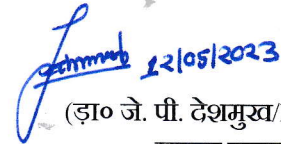 12/05/2023
(ड़ा० जे. पी. देशमुख/